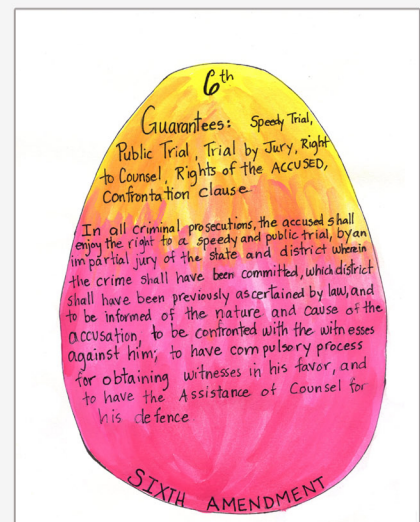 6th
Guarantees: Speedy Trial,
Public Trial, Trial by Jury, Right
to Counsel, Rights of the ACCUSED,
Confrontation clause
In all criminal prosecutions, the accused shall
enjoy the right to a speedy and public trial, by an
impartial jury of the state and district wherein
the crime shall have been committed, which district
shall have been previously ascertained by law, and
to be informed of the nature and cause of the
accusation, to be confronted with the witnesses
against him; to have compulsory process
for obtaining witnesses in his favor, and
to have the Assistance of Counsel for
his defence
SIXTH AMENDMENT